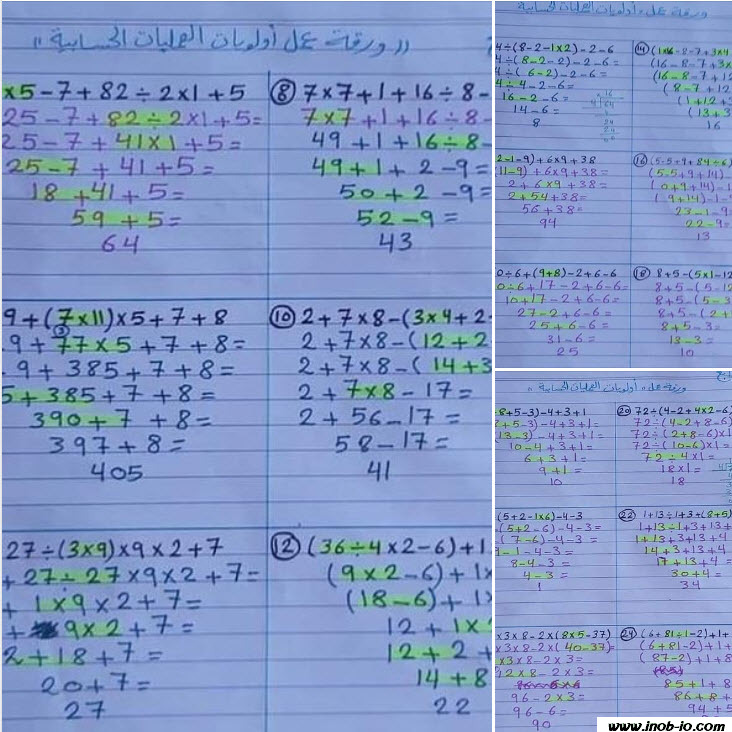 (( ورقة عمل أولويات العمليات الحسابية ))
×5-7+82÷2×1+5
25-7+82÷2×1+5=
25-7+41×1+5=
25-7+41+5=
18+41+5=
59+5=
64
⑧ 7×7+1+16÷8-
7×7+1+16÷8-
49+1+16÷8-
49+1+2-9=
50+2-9=
52-9=
43
9+(7×11)×5+7+8
9+77×5+7+8=
9+385+7+8=
5+385+7+8=
390+7+8=
397+8=
405
⑩ 2+7×8-(3×4+2
2+7×8-(12+2
2+7×8-(14+3
2+7×8-17=
2+56-17=
58-17=
41
27÷(3×9)×9×2+7
+27÷27×9×2+7=
+1×9×2+7=
+9×2+7=
2+18+7=
20+7=
27
⑫ (36÷4×2-6)+1
(9×2-6)+1×
(18-6)+1×
12+1×
12+2+
14+8
22
ورقة عمل أولويات العمليات الحسابية
4÷(8-2-1×2)-2-6
4÷(8-2-2)-2-6=
4÷(6-2)-2-6=
4÷4-2-6=
16-2-6=
14-6=
8
⑭ (1×16-8-7+3×4
(16-8-7+3×
(16-8-7+12
(8-7+12
(1+12+
(13+3
16
2-1-9)+6×9+38
11-9)+6×9+38=
2+6×9+38=
2+54+38=
56+38=
94
⑯ (5-5+9+84÷6)
(5-5+9+14)
(0+9+14)-1
(9+14)-1-
23-1-9
22-9=
13
0÷6+(9+8)-2+6-6
0÷6+17-2+6-6=
10+17-2+6-6=
27-2+6-6=
25+6-6=
31-6=
25
⑱ 8+5-(5×1-12
8+5-(5-12
8+5-(5-3
8+5-(2+
8+5-3=
13-3=
10
ورقة عمل أولويات العمليات الحسابية
8+5-3)-4+3+1
8+5-3)-4+3+1=
13-3)-4+3+1=
10-4+3+1=
6+3+1=
9+1=
10
⑳ 72÷(4-2+4×2-6)
72÷(4-2+8-6)
72÷(2+8-6)×1
72÷(10-6)×1=
72÷4×1=
18×1=
18
(5+2-1×6)-4-3
(5+2-6)-4-3=
(7-6)-4-3=
9-1-4-3=
8-4-3=
4-3=
1
㉒ 1+13÷1+3+(8+5)
1+13÷1+3+13+
1+13+3+13+4
14+3+13+4
17+13+4=
30+4=
34
×3×8-2×(8×5-37)
×3×8-2×(40-37)=
×3×8-2×3=
12×8-2×3=
96-2×3=
96-6=
90
㉔ (6+81÷1-2)+1+
(6+81-2)+1+
(87-2)+1+8
85+1+8
86+8+
94+5
www.inob-io.com